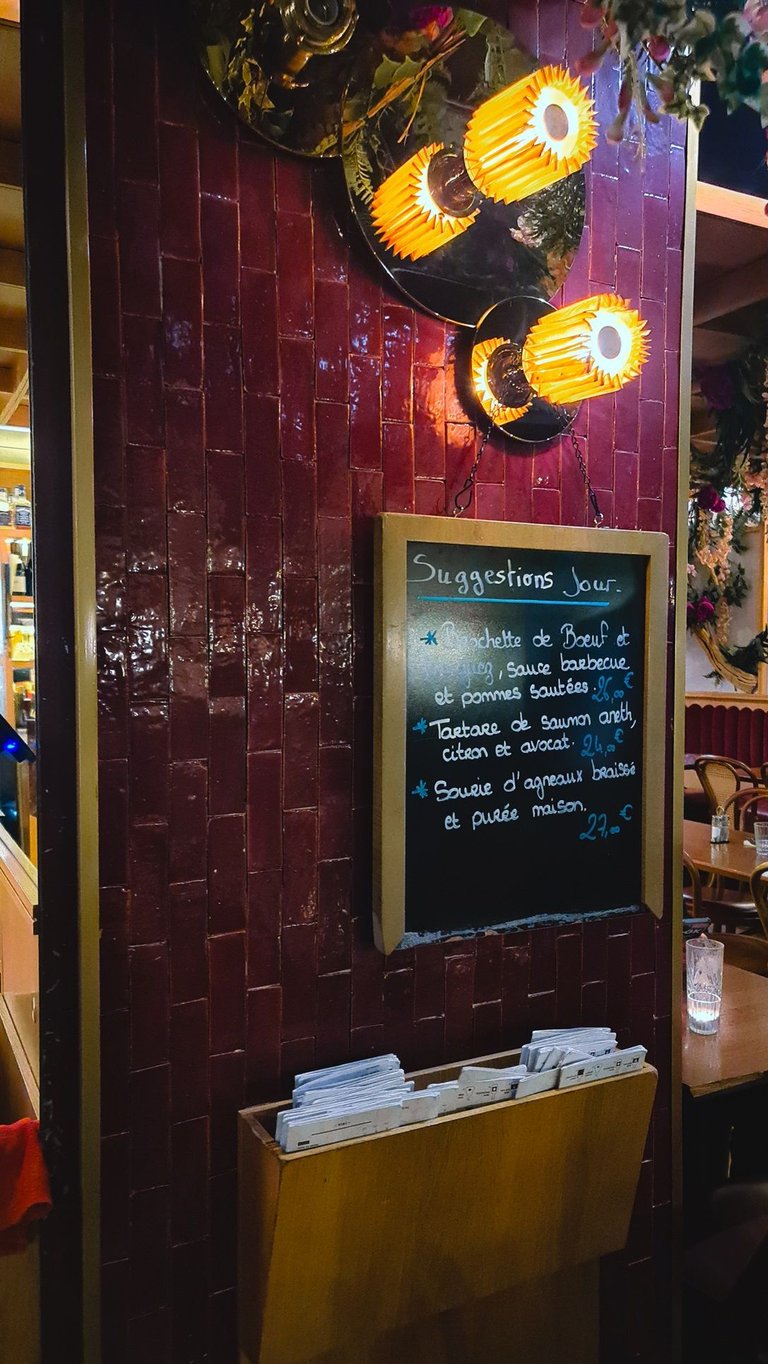 Suggestions Jour.
* Brochette de Boeuf et
, sauce barbecue
et pommes sautées. 26,00€
* Tartare de saumon aneth,
citron et avocat. 24,00€
* Sourie d'agneaux braissé
et purée maison.
27,00€